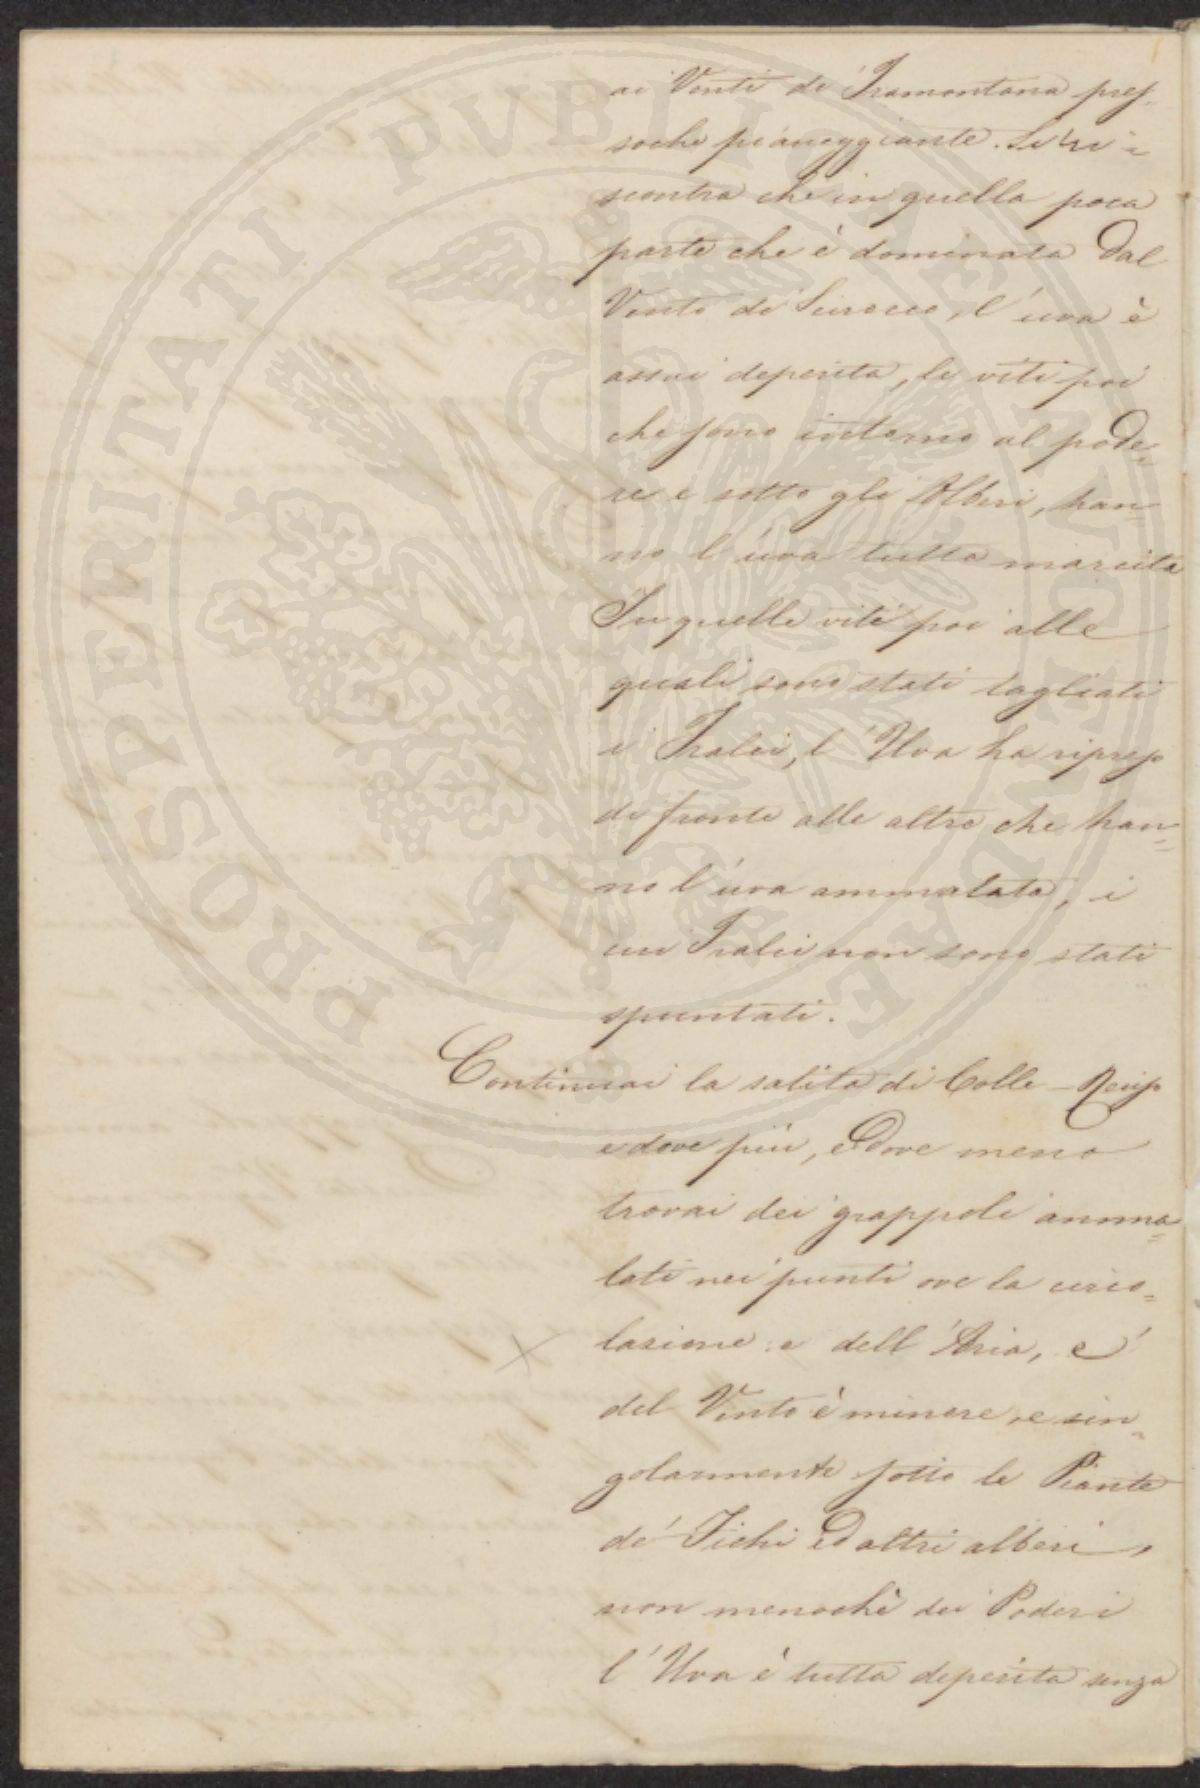 ai Venti di Tramontana pres-
soche pianeggiante. Si ri=
scontra che in quella poca
parte che è dominata dal
Vento di Scirocco, l'uva è
assai deperita, le viti poi
che sono intorno al pode=
re e sotto gli Alberi, han=
no l'uva tutta marcita
In quelle viti poi alle
quali sono stati tagliati
i Tralci, l'Uva ha ripreso
di fronte alle altre che han=
no l'uva ammalata, i
cui Tralci non sono stati
spuntati.
Continuai la salita di Colle-
e dove più, e dove meno
trovai dei grappoli amma=
lati nei punti ove la circo=
lazione e dell'Aria, e
del Vento è minore, e sin=
golarmente sotto le Piante
de' Fichi ed altri alberi,
non menochè dei Poderi
l'Uva è tutta deperita senza
PROSPERITATI PUBLICAE AUGENDAE